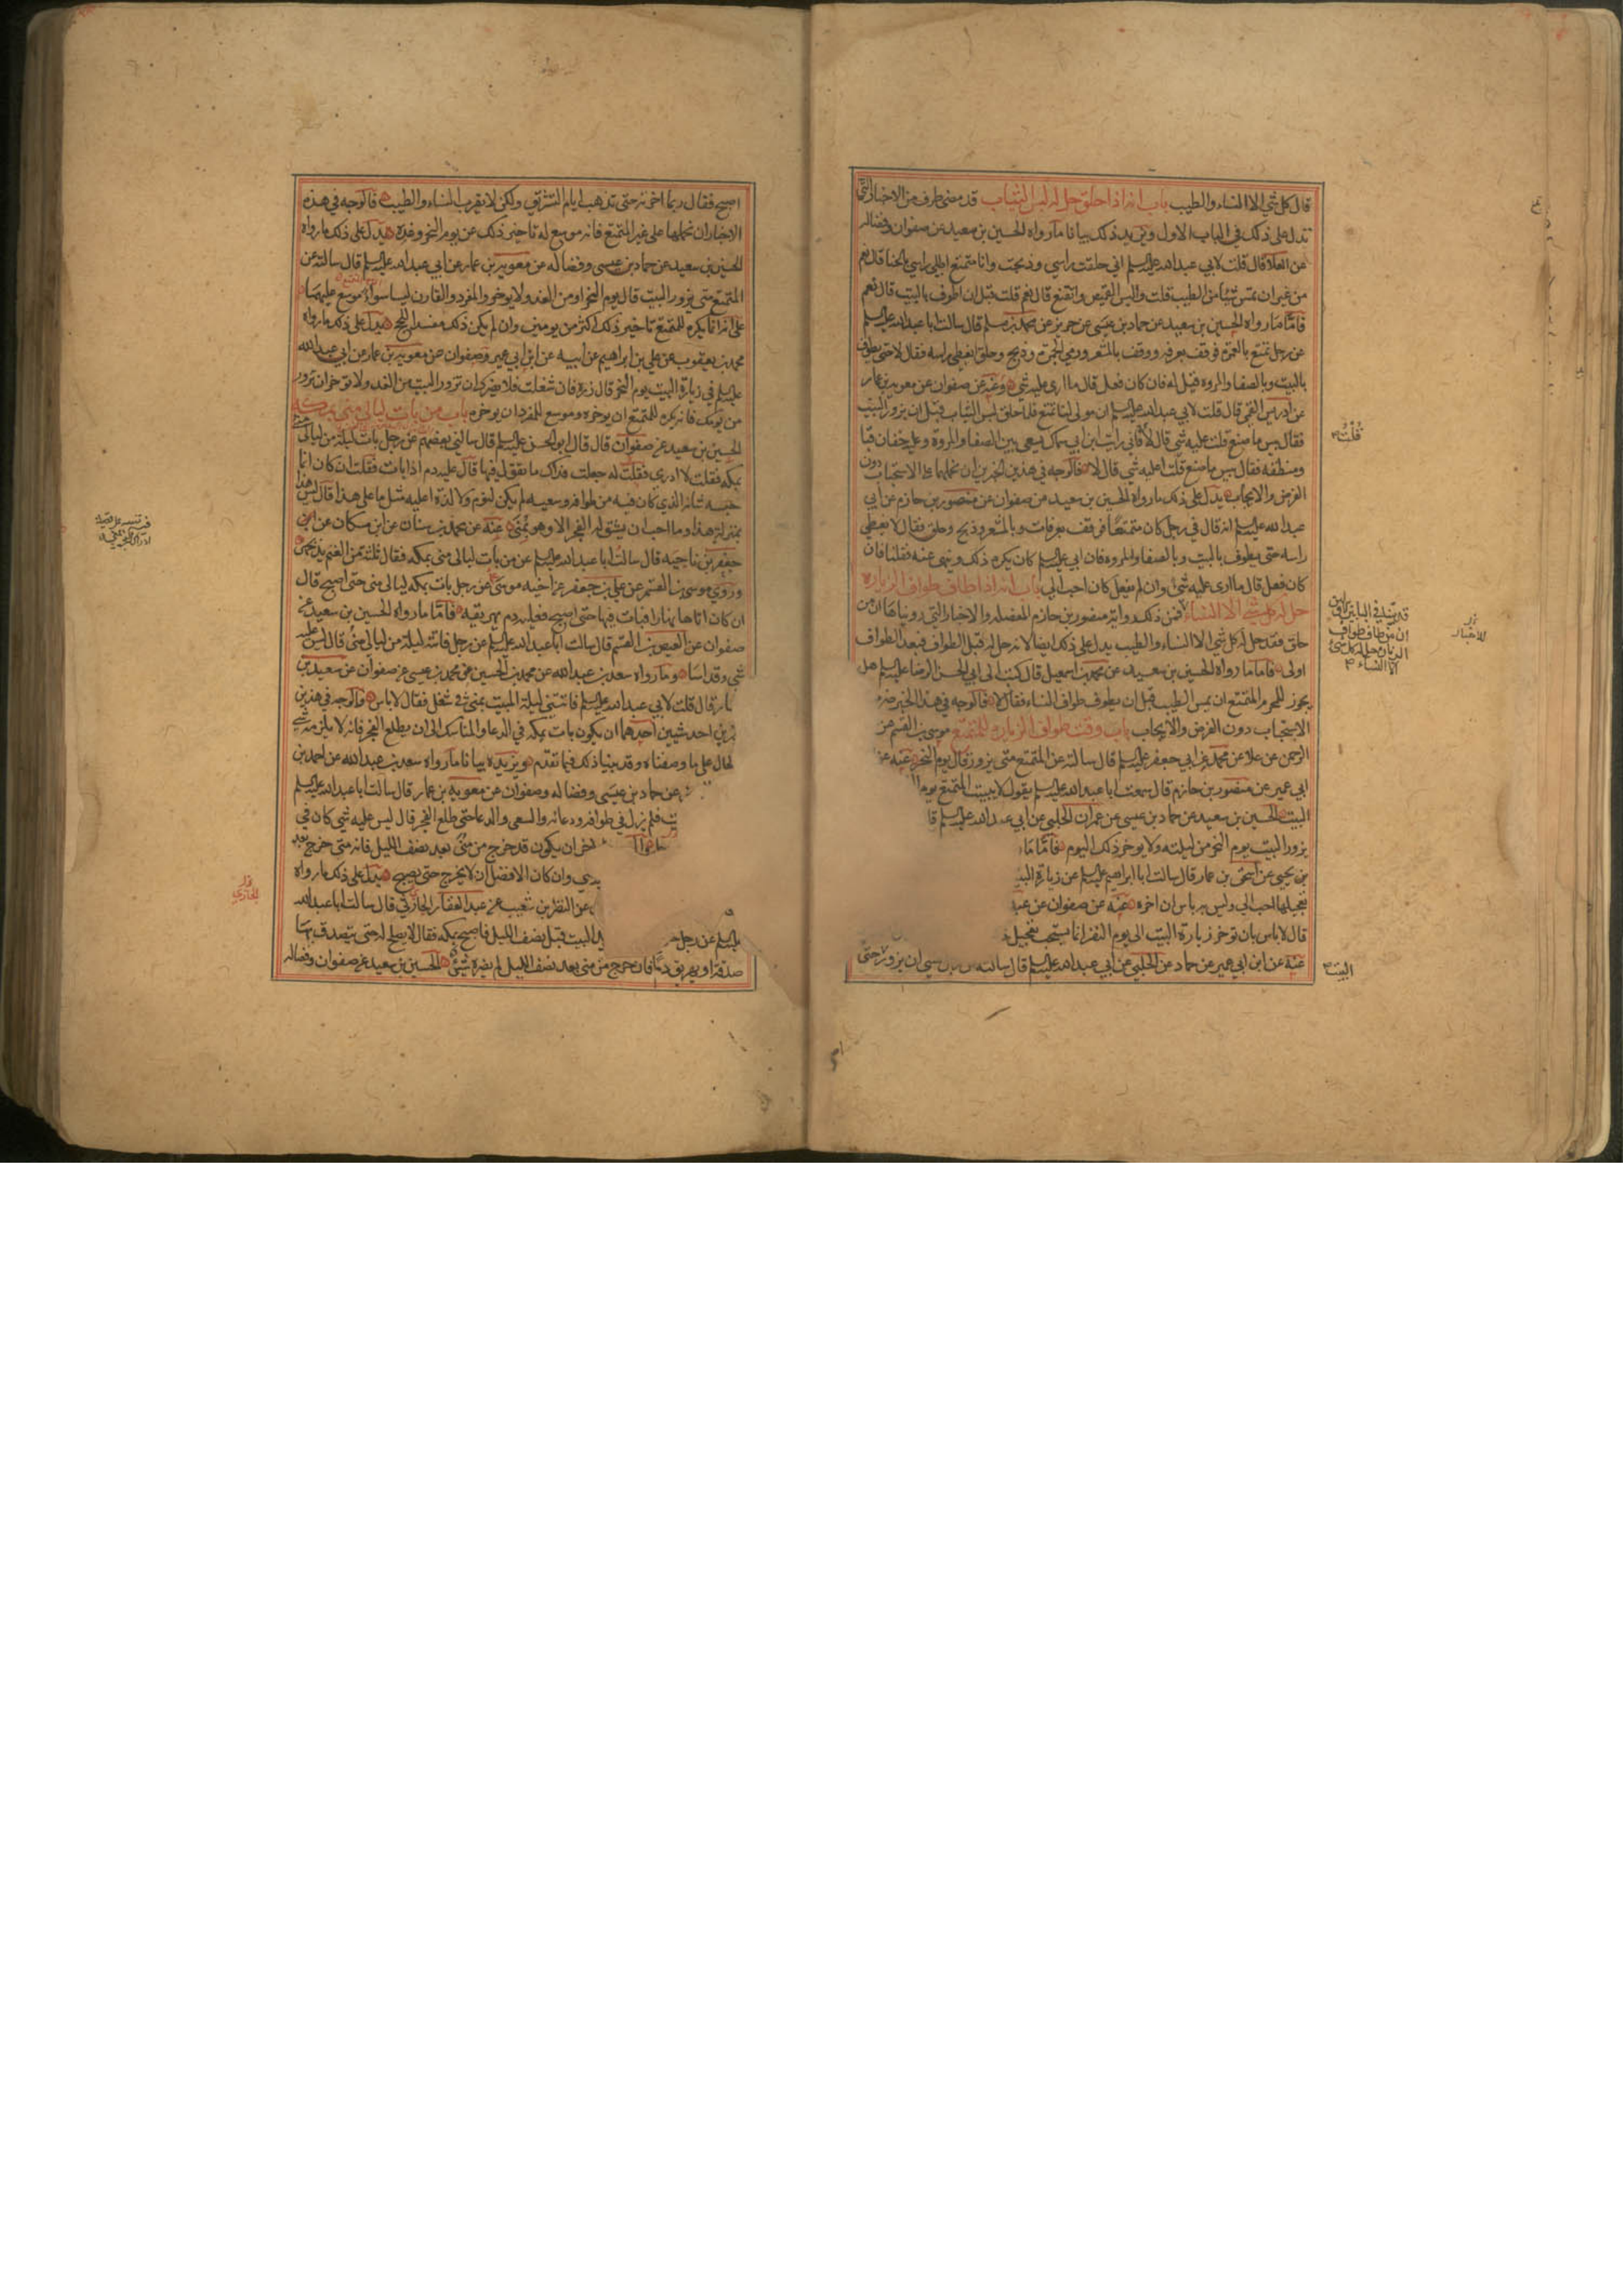 قال كل شي الا النساء والطيب باب انه اذا حلق حل له لبس الثياب قد مضى طرف من الاخبار التي
تدل على ذلك في الباب الاول ويزيد ذلك بيانا ما رواه الحسين بن سعيد عن صفوان وفضاله
عن العلا قال قلت لابي عبد الله عليه السلم اني حلقت راسي وذبحت وانا متمتع اطلي راسي بالحنا قال نعم
من غير ان تمس شيئا من الطيب قلت والبس القميص واتقنع قال نعم قلت قبل ان اطوف بالبيت قال نعم
فاما ما رواه الحسين بن سعيد عن حماد بن عيسى عن حريز عن محمد بن مسلم قال سالت ابا عبد الله عليه السلم
عن رجل تمتع بالعمرة فوقف بعرفه ووقف بالمشعر ورمي الجمرة وذبح وحلق ايغطي راسه فقال لا حتى يطوف
بالبيت وبالصفا والمروه قيل له فان كان فعل قال ما ارى عليه شي وعنه عن صفوان عن معويه بن عمار
عن ادريس القمي قال قلت لابي عبد الله عليه السلم ان مولى لنا تمتع فلما حلق لبس الثياب قبل ان يزور البيت
فقال بيس ما صنع قلت عليه شي قال لا فاني رايت ابن ابي سماك يسعى بين الصفا والمروة وعليه خفان قبا
ومنطقه فقال بيس ما صنع قلت اعليه شي قال لا فالوجه في هذين الخبرين ان نحملهما على الاستحباب دون
الفرض والايجاب يدل على ذلك ما رواه الحسين بن سعيد عن صفوان عن منصور بن حازم عن ابي
عبد الله عليه السلم انه قال في رجل كان متمتعا فوقف بعرفات وبالمشعر وذبح وحلق فقال لا يغطي
راسه حتى يطوف بالبيت وبالصفا والمروه فان ابي عليه السلم كان يكره ذلك وينهى عنه فقلنا فان
كان فعل قال ما ارى عليه شي وان لم يفعل كان احب الي باب انه اذا طاف طواف الزياره
حل له كل شي الا النساء فمن ذلك رواية منصور بن حازم المفصله والاخبار التي رويناها ان من
حلق فقد حل له كل شي الا النساء والطيب يدل على ذلك ايضا لانه حل له قبل الطواف فبعد الطواف
اولى فاما ما رواه الحسين بن سعيد عن محمد بن اسمعيل قال كتبت الى ابي الحسن الرضا عليه السلم هل
يجوز للمحرم المتمتع ان يمس الطيب قبل ان يطوف طواف النساء فقال لا فالوجه في هذا الخبر ضرب
الاستحباب دون الفرض والايجاب باب وقت طواف الزيارة للمتمتع موسى بن القسم عن
الرحمن عن علا عن محمد عن ابي جعفر عليه السلم قال سالته عن المتمتع متى يزور قال يوم النحر عنه عن
ابي عمير عن منصور بن حازم قال سمعت ابا عبد الله عليه السلم يقول لا يبيت المتمتع يوم
البيت الحسين بن سعيد عن حماد بن عيسى عن عمران الحلبي عن ابي عبد الله عليه السلم قا
يزور البيت يوم النحر من ليلته ولا يوخر ذلك اليوم فاما ما
بن يحيى عن اسحق بن عمار قال سالت ابا ابراهيم عليه السلم عن زيارة
تعجيلها احب الي وليس به باس ان اخره عنه عن صفوان عن عبد
قال لا باس بان توخر زيارة البيت الى يوم النفر انما يستحب تعجيل
عنه عن ابن ابي عمير عن حماد عن الحلبي عن ابي عبد الله عليه السلم قال سالته نسي ان يزور حتى
قلت
قد بينا في الباب
ان من طاف طواف
الزيارة حل له كل شي
الا النساء
البيت
اصبح فقال ربما اخرته حتى تذهب ايام التشريق ولكن لا يقرب النساء والطيب فالوجه في هذه
الاخبار ان نحملها على غير المتمتع فانه موسع له تاخير ذلك عن يوم النحر وغده يدل على ذلك ما رواه
الحسين بن سعيد عن حماد بن عيسى وفضاله عن معويه بن عمار عن ابي عبد الله عليه السلم قال سالته عن
المتمتع متى يزور البيت قال يوم النحر او من الغد ولا يوخر والمفرد والقارن ليسا سواء موسع عليهما
على انه انما يكره للمتمتع تاخير ذلك اكثر من يومين وان لم يكن ذلك مفسدا للحج يدل على ذلك ما رواه
محمد بن يعقوب عن علي بن ابراهيم عن ابيه عن ابن ابي عمير وصفوان عن معويه بن عمار عن ابي عبد الله
عليه السلم في زيارة البيت يوم النحر قال زره فان شغلت فلا يضرك ان تزور البيت من الغد ولا توخر ان تزور
من يومك فانه يكره للمتمتع ان يوخره وموسع للمفرد ان يوخره باب من بات ليالي منى بمكه
الحسين بن سعيد عن صفوان قال قال ابو الحسن عليه السلم قال سالني بعضهم عن رجل بات ليلة من ليالي منى
بمكه فقلت لا ادري فقلت له جعلت فداك ما تقول فيها قال عليه دم اذا بات فقلت ان كان انما
حبسه شانه الذي كان فيه من طوافه وسعيه لم يكن لنوم ولا لذة اعليه مثل ما على هذا قال ليس هذا
بمنزلة هذا وما احب ان ينشق له الفجر الا وهو بمنى عنه عن محمد بن سنان عن ابن مسكان عن
جعفر بن ناجيه قال سالت ابا عبد الله عليه السلم عن من بات ليالي منى بمكه فقال ثلثه من الغنم يذبحهن
وروي موسى بن القسم عن علي بن جعفر عن اخيه موسى عن رجل بات بمكه ليالي منى حتى اصبح قال
ان كان اتاها نهارا فبات فيها حتى اصبح فعليه دم يهريقه فاما ما رواه الحسين بن سعيد عن
صفوان عن العيص بن القسم قال سالت ابا عبد الله عليه السلم عن رجل فاتته ليلة من ليالي منى قال ليس عليه
شي وقد اسا وما رواه سعد بن عبد الله عن محمد بن الحسين عن محمد بن عيسى عن صفوان عن سعيد بن
يسار قال قلت لابي عبد الله عليه السلم فاتتني ليلة المبيت بمنى في شغل فقال لا باس فالوجه في هذين
احد شيين احدهما ان يكون بات بمكه في الدعا والمناسك الى ان يطلع الفجر فانه لا يلزمه شي
لحال على ما وصفناه وقد بينا ذلك فيما تقدم ويزيده بيانا ما رواه سعد بن عبد الله عن احمد بن
عن حماد بن عيسى وفضاله وصفوان عن معويه بن عمار قال سالت ابا عبد الله عليه السلم
فلم يزل في طوافه ودعائه والسعي والدعا حتى طلع الفجر قال ليس عليه شي كان في
اخر ان يكون قد خرج من منى بعد نصف الليل فانه متى خرج بعد
وان كان الافضل ان لا يخرج حتى يصبح يدل على ذلك ما رواه
عن النضر بن شعيب عن عبد الغفار الجازي قال سالت ابا عبد الله
عليه السلم عن رجل البيت قبل نصف الليل فاصبح بمكه فقال لا يصلح له حتى يتصدق بها
صدقه او يهريق دما فان خرج من منى بعد نصف الليل لم يضره شي الحسين بن سعيد عن صفوان وفضاله